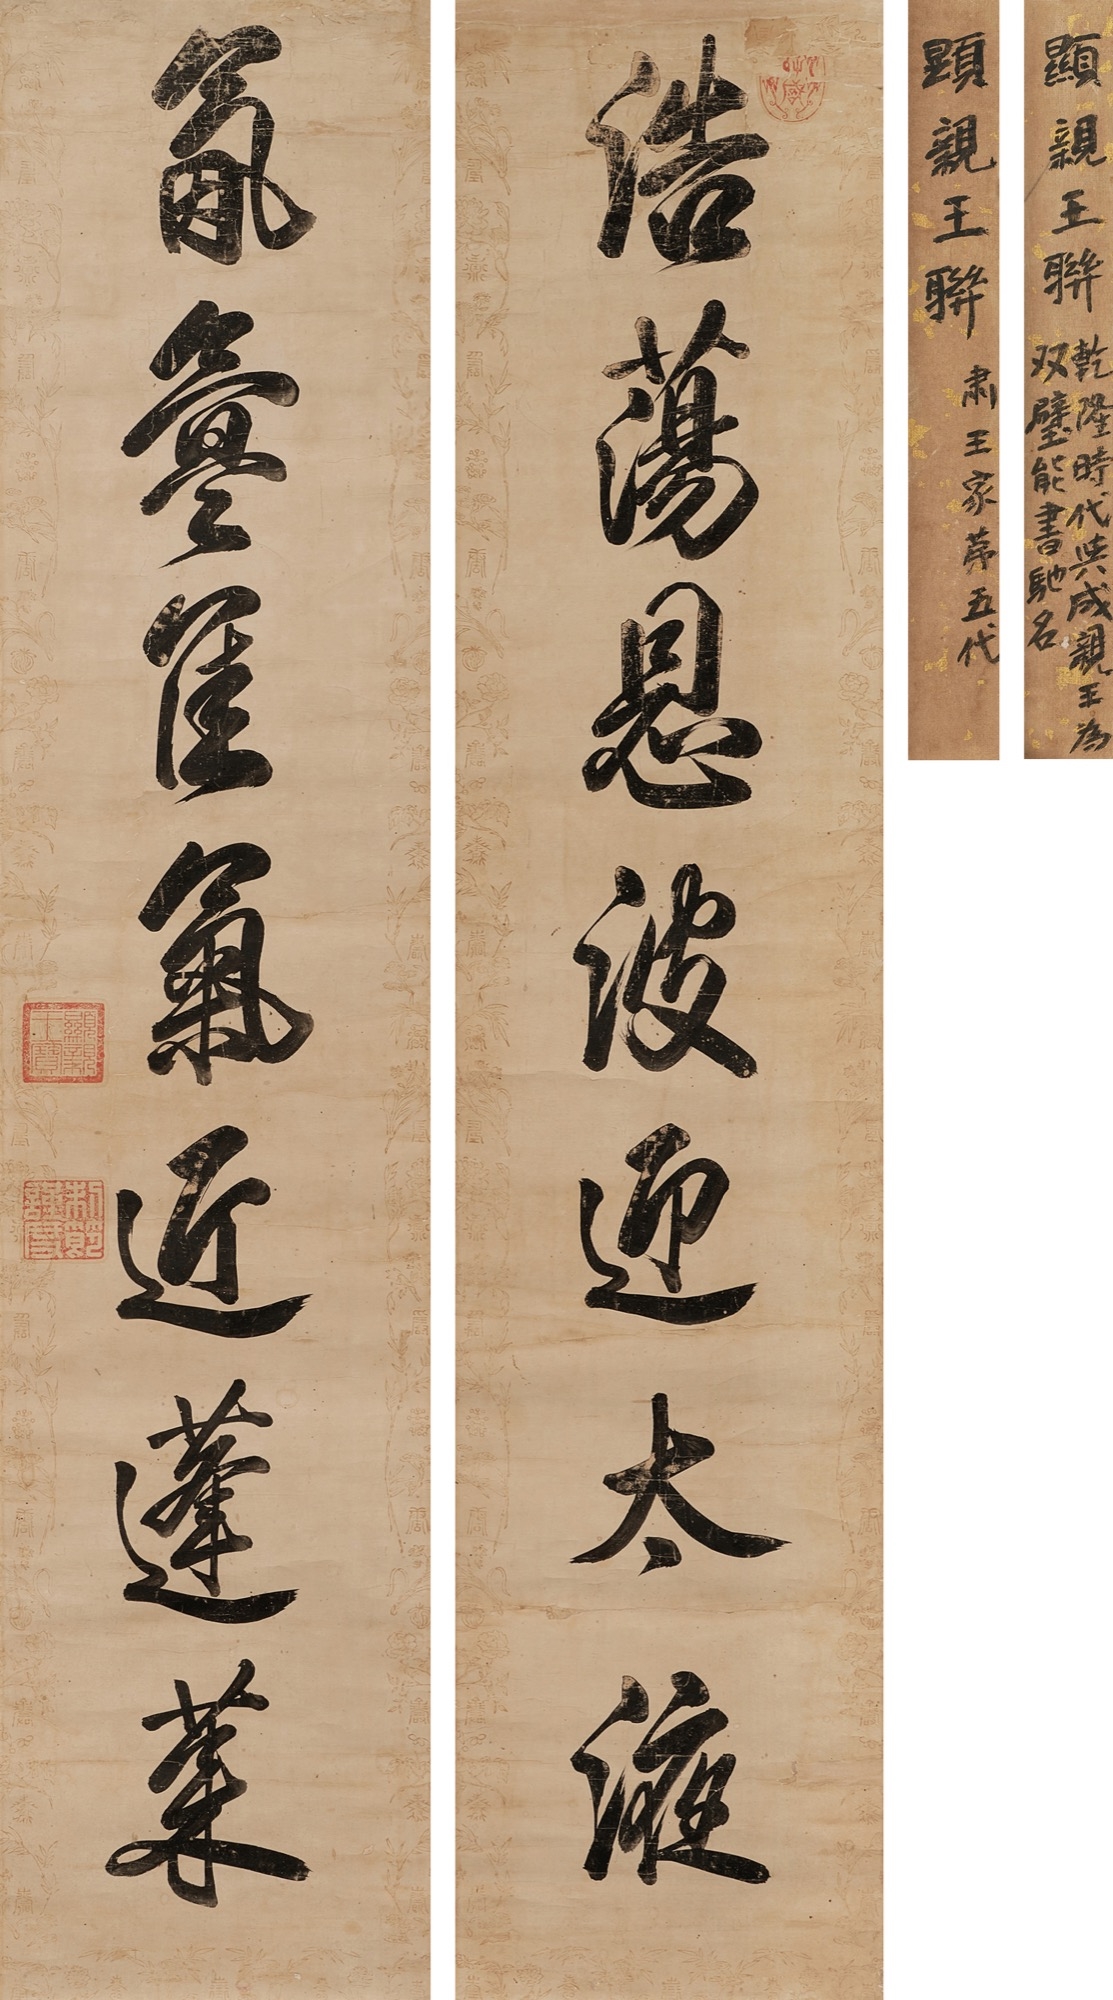 顯親王聯
乾隆時代與成親王為
双璧能書馳名
顕親王聯
肅王家第五代
浩蕩恩波迎太液
氤氳佳氣近蓬萊
顯親王寶
制節謹度